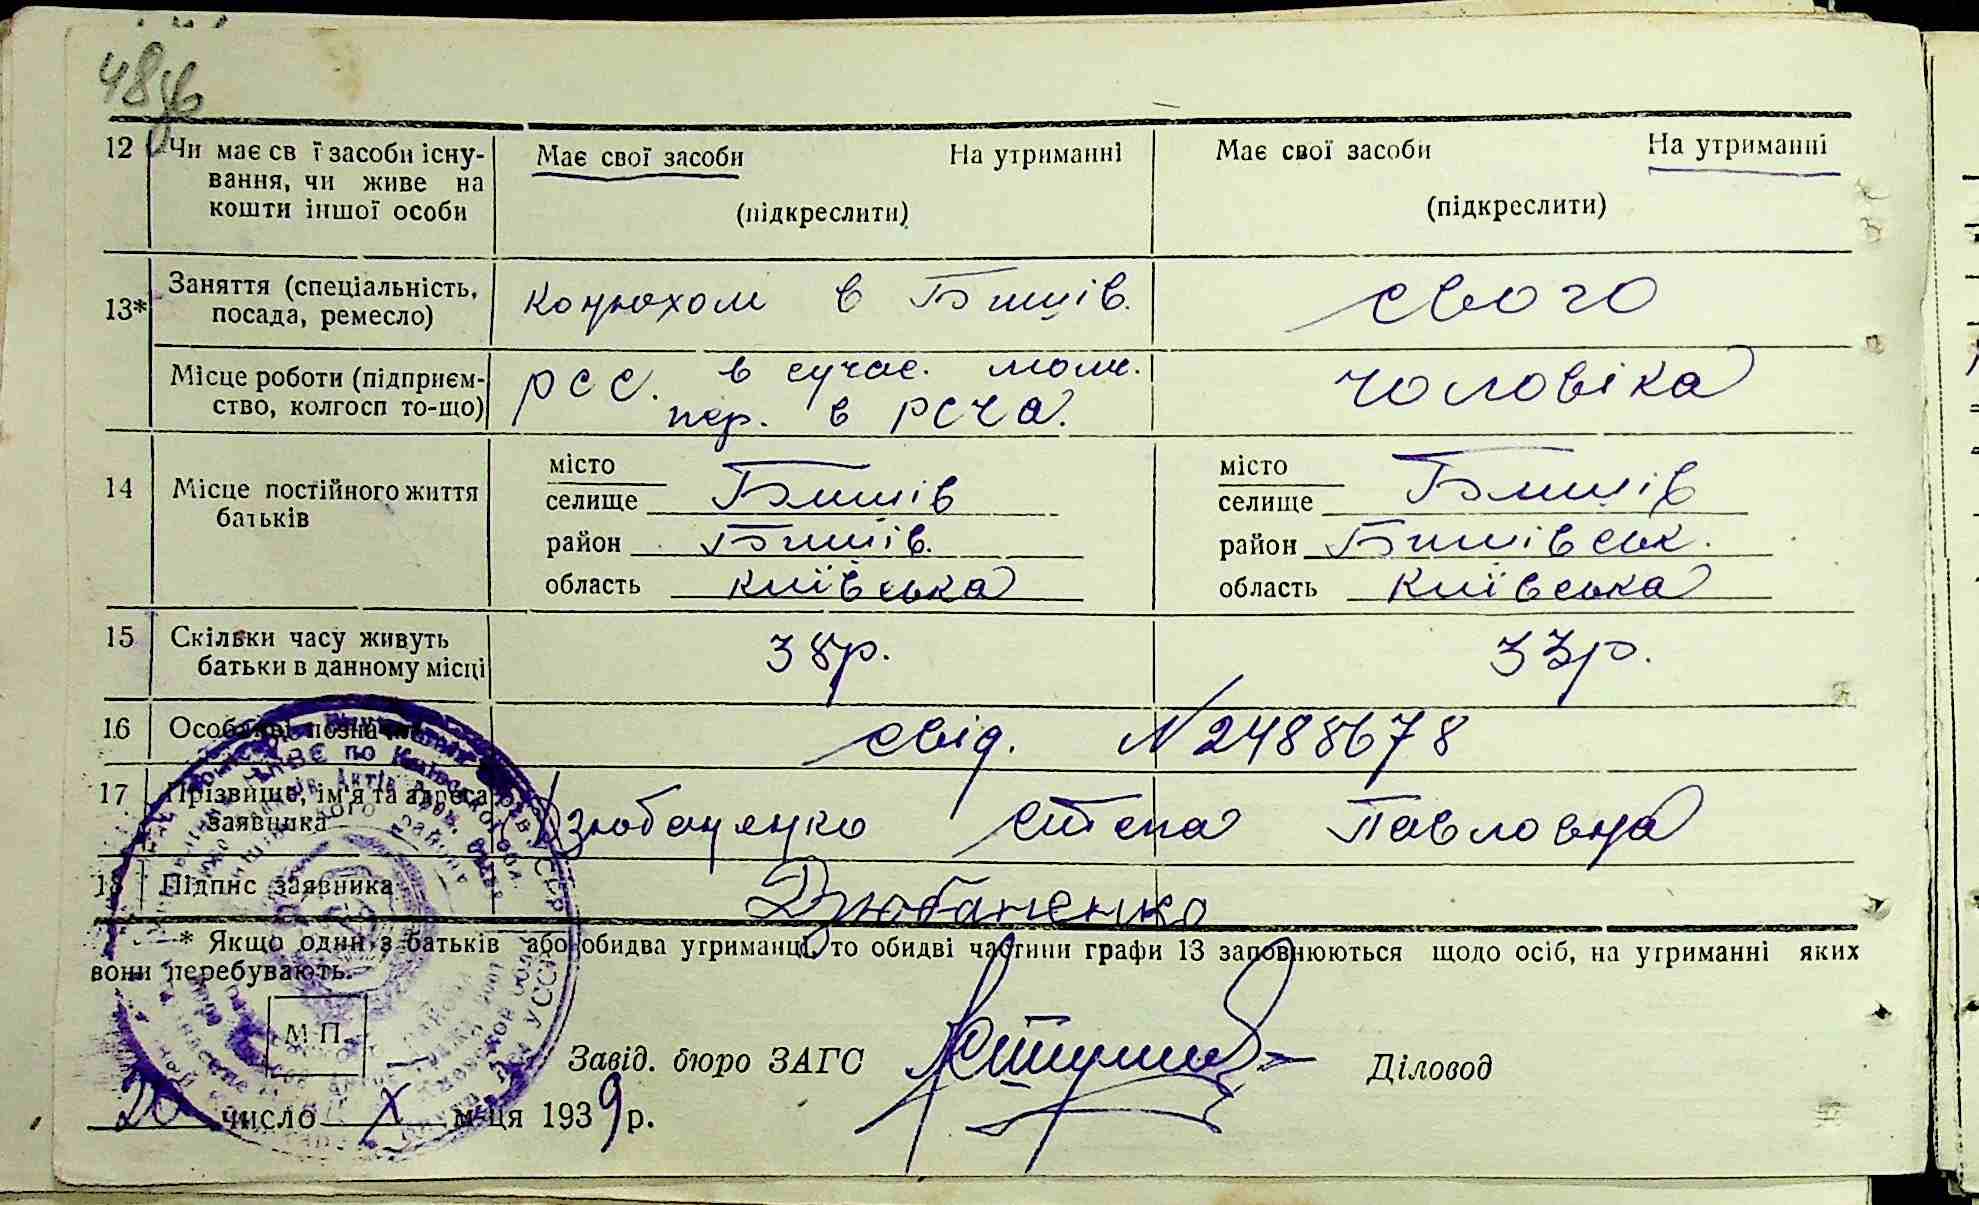 48зв
12 Чи має св ї засоби існу-
вання, чи живе на
кошти іншої особи
Має свої засоби На утриманні
(підкреслити)
Має свої засоби На утриманні
(підкреслити)
13* Заняття (спеціальність,
посада, ремесло)
конюхом в Бишів.
свого
Місце роботи (підприєм-
ство, колгосп то-що)
РСС. в сучас. мом.
пер. в РСЧА.
чоловіка
14 Місце постійного життя
батьків
місто
селище Бишів
район Бишів.
область Київська
місто
селище Бишів
район Бишівськ.
область Київська
15 Скільки часу живуть
батьки в данному місці
38р.
33р.
16 Особливі
свід. №2488678
17 Прізвище, ім'я та адреса
заявника
Дзюбаненко Степа Павловна
18 Підпис заявника
Дзюбаненко
* Якщо один з батьків або обидва утриманці, то обидві частини графи 13 заповнюються щодо осіб, на утриманні яких
вони перебувають.
М П.
Завід. бюро ЗАГС Діловод
20 число X м-ця 1939 р.